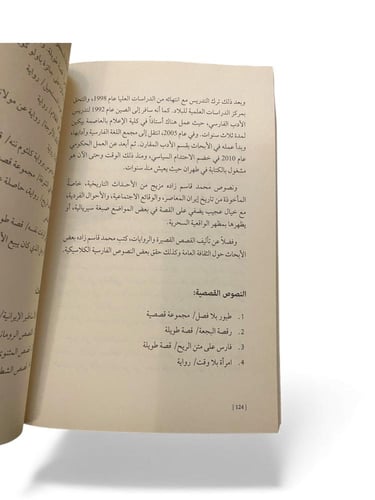 وبعد ذلك ترك التدريس مع انتهائه من الدراسات العليا عام 1998، والتحق
بمركز الدراسات العلمية للبلاد. كما أنه سافر إلى الصين عام 1992 لتدريس
الأدب الفارسي، حيث عمل هناك أستاذاً في كلية الإعلام بالعاصمة بيكين
لمدة ثلاث سنوات. وفي عام 2005، انتقل إلى مجمع اللغة الفارسية وآدابها،
وبدأ عمله في الأبحاث بقسم الأدب المقارن. ثم أبعد عن العمل الحكومي
عام 2010 في خضم الاحتدام السياسي، ومنذ ذلك الوقت وحتى الآن هو
مشغول بالكتابة في طهران حيث يعيش منذ سنوات.
ونصوص محمد قاسم زاده مزيج من الأحداث التاريخية، خاصة
المأخوذة من تاريخ إيران المعاصر، والوقائع الاجتماعية، والأحوال الفردية،
مع خيال عجيب يضفي على القصة في بعض المواضع صبغة سيريالية، أو
يظهرها بمظهر الواقعية السحرية.
وفضلاً عن تأليف القصص القصيرة والروايات، كتب محمد قاسم زاده بعض
الأبحاث حول الثقافة العامة وكذلك حقق بعض النصوص الفارسية الكلاسيكية.
النصوص القصصية:
1. طيور بلا فصل/ مجموعة قصصية
2. رقصة البجعة/ قصة طويلة
3. فارس على متن الريح/ قصة طويلة
4. امرأة بلا وقت/ رواية
[ 124 ]